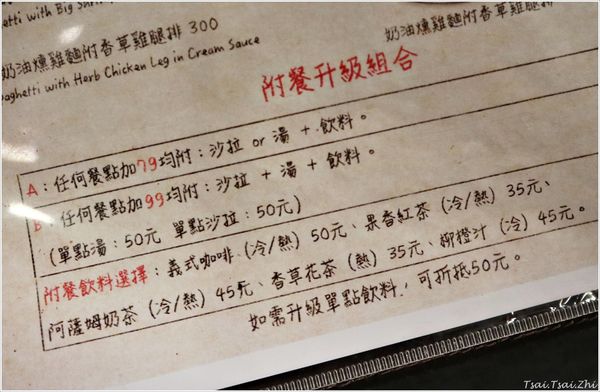 etti with Big Shri
奶油燻雞麵附香草雞腿排 300
paghetti with Herb Chicken Leg in Cream Sauce
奶油燻雞麵附香草雞腿排
附餐升級組合
A：任何餐點加79均附：沙拉 or 湯 + 飲料。
B：任何餐點加99均附：沙拉 + 湯 + 飲料。
(單點湯：50元 單點沙拉：50元)
附餐飲料選擇：義式咖啡 (冷/熱) 50元、果香紅茶 (冷/熱) 35元、
阿薩姆奶茶 (冷/熱) 45元、香草花茶 (熱) 35元、柳橙汁 (冷) 45元。
如需升級單點飲料，可折抵50元。
Tsai.Tsai.Zhi